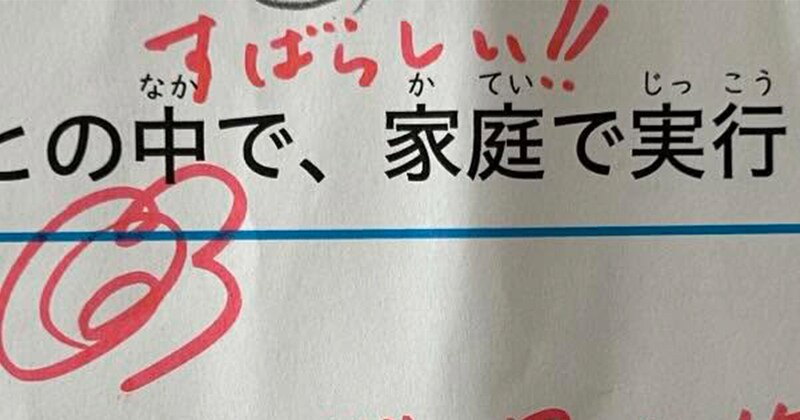 すばらしい!!
なか か てい じっ こう
との中で、家庭で実行